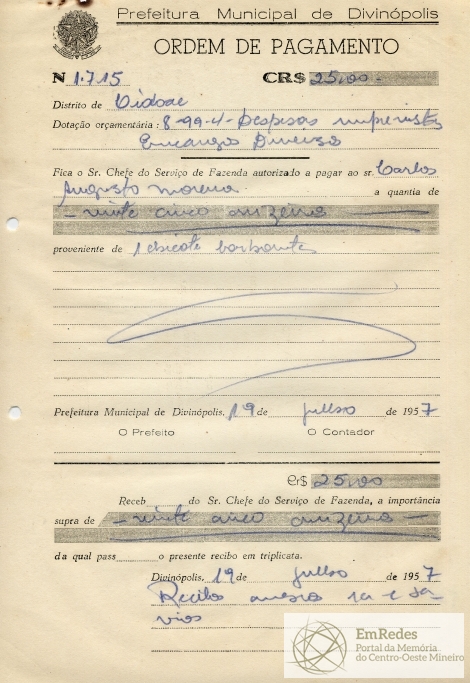 Prefeitura Municipal de Divinópolis
ORDEM DE PAGAMENTO
N 1.715 CR$ 25,00
Distrito de Cidade
Dotação orçamentária: 8-99-4- Despesas imprevistas
Encargos Diversos
Fica o Sr. Chefe do Serviço de Fazenda autorizado a pagar ao sr. Carlos
Augusto Moreira a quantia de
- vinte cinco cruzeiros -
proveniente de 1
Prefeitura Municipal de Divinópolis, 19 de julho de 1957
O Prefeito O Contador
Cr$ 25,00
Receb do Sr. Chefe do Serviço de Fazenda, a importância
supra de - vinte cinco cruzeiros -
da qual pass o presente recibo em triplicata.
Divinópolis, 19 de julho de 1957
Recibo anexo
EmRedes
Portal da Memória
do Centro-Oeste Mineiro